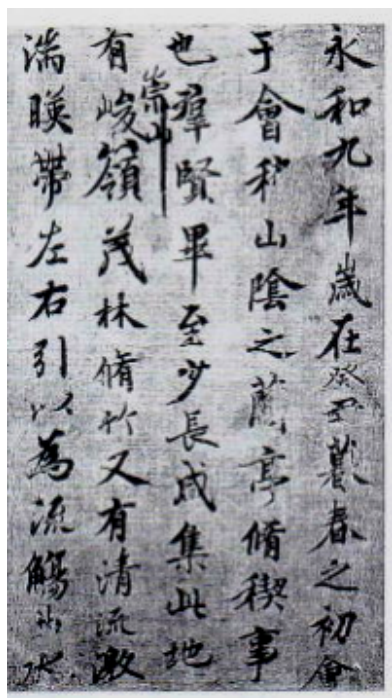 永和九年歲在癸丑暮春之初會
于會稽山陰之蘭亭脩稧事
也羣賢畢至少長咸集此地
有崇山峻嶺茂林脩竹又有清流激
湍暎帶左右引以為流觴曲水